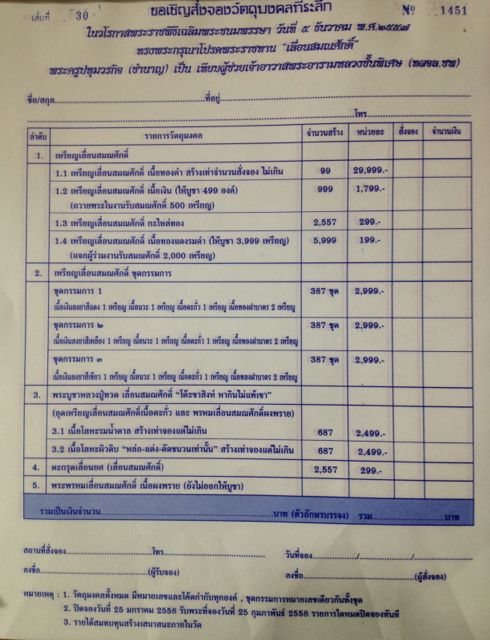 เล่มที่ 30
ขอเชิญสั่งจองวัตถุมงคลที่ระลึก
№ 1451
ในวโรกาสพระราชพิธีเฉลิมพระชนมพรรษา วันที่ ๕ ธันวาคม พ.ศ.๒๕๕๗
ทรงพระกรุณาโปรดพระราชทาน "เลื่อนสมณศักดิ์"
พระครูปทุมวรกิจ (ชำนาญ) เป็น เทียบผู้ช่วยเจ้าอาวาสพระอารามหลวงชั้นพิเศษ (ทผจล.ชพ)
ชื่อ/สกุล ที่อยู่
โทร
ลำดับ รายการวัตถุมงคล จำนวนสร้าง หน่วยละ สั่งจอง จำนวนเงิน
1. เหรียญเลื่อนสมณศักดิ์
1.1 เหรียญเลื่อนสมณศักดิ์ เนื้อทองคำ สร้างเท่าจำนวนสั่งจอง ไม่เกิน 99 29,999.-
1.2 เหรียญเลื่อนสมณศักดิ์ เนื้อเงิน (ให้บูชา 499 องค์) 999 1,799.-
(ถวายพระในงานรับสมณศักดิ์ 500 เหรียญ)
1.3 เหรียญเลื่อนสมณศักดิ์ กะไหล่ทอง 2,557 299.-
1.4 เหรียญเลื่อนสมณศักดิ์ เนื้อทองแดงรมดำ (ให้บูชา 3,999 เหรียญ) 5,999 199.-
(แจกผู้ร่วมงานรับสมณศักดิ์ 2,000 เหรียญ)
2. เหรียญเลื่อนสมณศักดิ์ ชุดกรรมการ
ชุดกรรมการ 1 387 ชุด 2,999.-
เนื้อเงินลงยาสีแดง 1 เหรียญ เนื้อนวะ 1 เหรียญ เนื้อตะกั่ว 1 เหรียญ เนื้อทองฝาบาตร 2 เหรียญ
ชุดกรรมการ ๒ 387 ชุด 2,999.-
เนื้อเงินลงยาสีเหลือง 1 เหรียญ เนื้อนวะ 1 เหรียญ เนื้อตะกั่ว 1 เหรียญ เนื้อทองฝาบาตร 2 เหรียญ
ชุดกรรมการ ๓ 387 ชุด 2,999.-
เนื้อเงินลงยาสีเขียว 1 เหรียญ เนื้อนวะ 1 เหรียญ เนื้อตะกั่ว 1 เหรียญ เนื้อทองฝาบาตร 2 เหรียญ
3. พระบูชาหลวงปู่ทวด เลื่อนสมณศักดิ์ "โต๊ะขาสิงห์ หากินไม่แพ้เขา"
(อุดเหรียญเลื่อนสมณศักดิ์เนื้อตะกั่ว และ พรหมเลื่อนสมณศักดิ์ผงพราย)
3.1 เนื้อโลหะรมน้ำตาล สร้างเท่าจองแต่ไม่เกิน 687 2,499.-
3.2 เนื้อโลหะผิวดิบ "หล่อ-แต่ง-ตัดชนวนเท่านั้น" สร้างเท่าจองแต่ไม่เกิน 687 2,499.-
4. ตะกรุดเลื่อนยศ (เลื่อนสมณศักดิ์) 2,557 299.-
5. พระพรหมเลื่อนสมณศักดิ์ เนื้อผงพราย (ยังไม่ออกให้บูชา)
รวมเป็นเงินจำนวน บาท (ตัวอักษรบรรจง) รวม บาท
สถานที่สั่งจอง โทร วันที่จอง / /
ลงชื่อ (ผู้รับจอง) ลงชื่อ (ผู้สั่งจอง)
หมายเหตุ : 1. วัตถุมงคลทั้งหมด มีหมายเลขและโค้ดกำกับทุกองค์ , ชุดกรรมการหมายเลขเดียวกันทั้งชุด
2. ปิดจองวันที่ 25 มกราคม 2558 รับพระที่จองวันที่ 25 กุมภาพันธ์ 2558 รายการใดหมดปิดจองทันที
3. รายได้สมทบทุนสร้างเสนาสนะภายในวัด